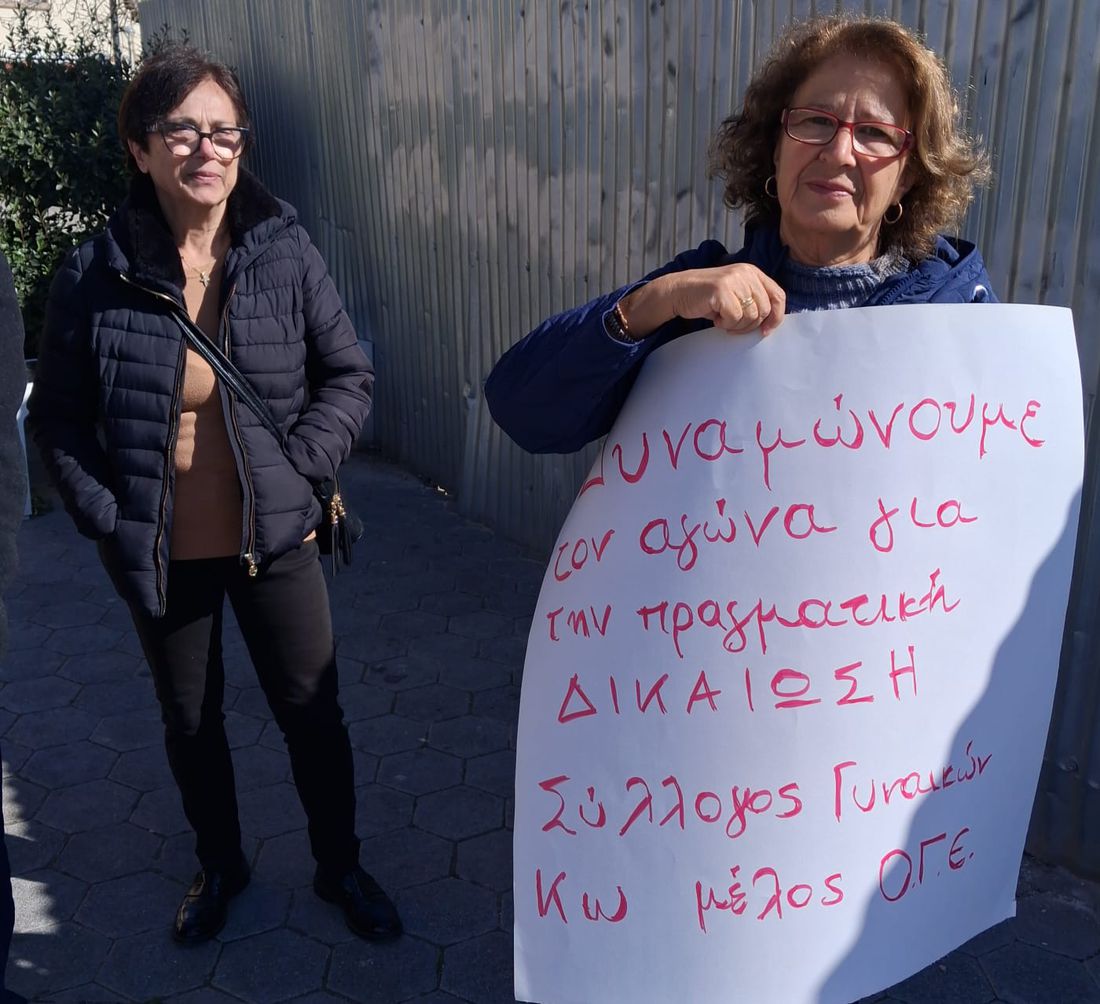 Δυναμώνουμε
τον αγώνα για
την πραγματική
ΔΙΚΑΙΩΣΗ
Σύλλογος Γυναικών
Κω μέλος Ο.Γ.Ε.